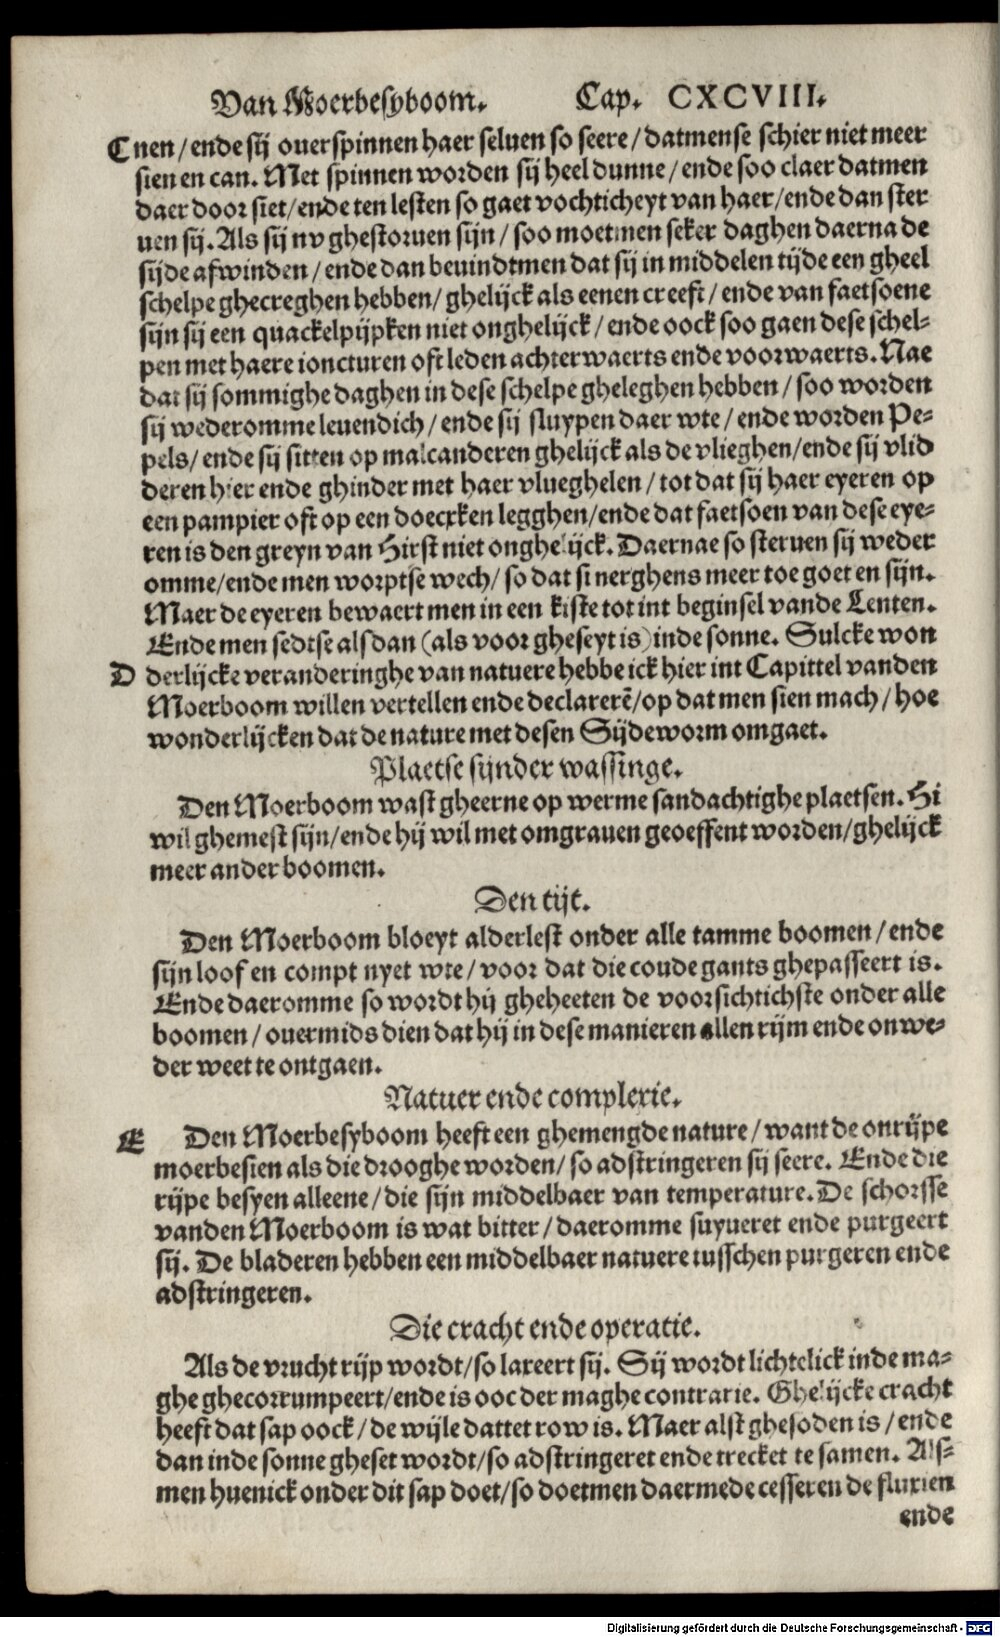 Van Moerbesyboom. Cap. CXCVIII.
C nen/ende sij ouerspinnen haer seluen so seere/datmense schier niet meer
sien en can. Met spinnen worden sij heel dunne/ende soo claer datmen
daer door siet/ende ten lesten so gaet vochticheyt van haer/ende dan ster
uen sij. Als sij nv ghestoruen sijn/soo moetmen seker daghen daerna de
sijde afwinden/ende dan beuindtmen dat sij in middelen tijde een gheel
schelpe ghecreghen hebben/ghelijck als eenen creeft/ende van faetsoene
sijn sij een quackelpijpken niet onghelijck/ende oock soo gaen dese schel-
pen met haere ioncturen oft leden achterwaerts ende voorwaerts. Nae
dat sij sommighe daghen in dese schelpe gheleghen hebben/soo worden
sij wederomme leuendich/ende sij sluypen daer wte/ende worden Pe-
pels/ende sij sitten op malcanderen ghelijck als de vlieghen/ende sij vlid
deren hier ende ghinder met haer vlueghelen/tot dat sij haer eyeren op
een pampier oft op een doecxken legghen/ende dat faetsoen van dese eye-
ren is den greyn van Hirst niet onghelijck. Daernae so steruen sij weder
omme/ende men worptse wech/so dat si nerghens meer toe goet en sijn.
Maer de eyeren bewaert men in een kiste tot int beginsel vande Lenten.
Ende men sedtse alsdan (als voor gheseyt is) inde sonne. Sulcke won
D derlijcke veranderinghe van natuere hebbe ick hier int Capittel vanden
Moerboom willen vertellen ende declarerē/op dat men sien mach/hoe
wonderlijcken dat de nature met desen Sijdeworm omgaet.
Plaetse sijnder wassinge.
Den Moerboom wast gheerne op werme sandachtighe plaetsen. Hi
wil ghemest sijn/ende hij wil met omgrauen geoeffent worden/ghelijck
meer ander boomen.
Den tijt.
Den Moerboom bloeyt alderlest onder alle tamme boomen/ende
sijn loof en compt nyet wte/voor dat die coude gants ghepasseert is.
Ende daeromme so wordt hij gheheeten de voorsichtichste onder alle
boomen/ouermids dien dat hij in dese manieren allen rijm ende onwe-
der weet te ontgaen.
Natuer ende complexie.
E Den Moerbesyboom heeft een ghemengde nature/want de onrijpe
moerbesien als die drooghe worden/so adstringeren sij seere. Ende die
rijpe besyen alleene/die sijn middelbaer van temperature. De schorsse
vanden Moerboom is wat bitter/daeromme suyueret ende purgeert
sij. De bladeren hebben een middelbaer natuere tusschen purgeren ende
adstringeren.
Die cracht ende operatie.
Als de vrucht rijp wordt/so laxeert sij. Sij wordt lichtelick inde ma-
ghe ghecorrumpeert/ende is ooc der maghe contrarie. Ghelijcke cracht
heeft dat sap oock/de wijle dattet row is. Maer alst ghesoden is/ende
dan inde sonne gheset wordt/so adstringeret ende trecket te samen. Als-
men huenick onder dit sap doet/so doetmen daermede cesseren de fluxien
ende
Digitalisierung gefördert durch die Deutsche Forschungsgemeinschaft - DFG